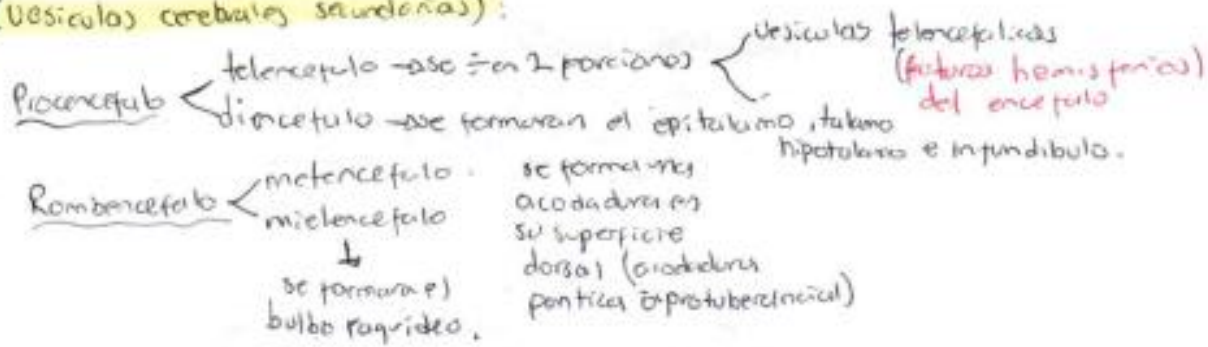 (Vesiculas cerebrales secundarias):
telencefalo → se ÷ en 2 porciones
vesiculas telencefalicas
(futuros hemisferios)
del encefalo
Procencefalo
diencefalo → se formaran el epitalamo, talamo
hipotalamo e infundibulo.
Rombencefalo
metencefalo.
mielencefalo
↓
se formara el
bulbo raquideo.
se forma una
acodadura en
su superficie
dorsal (acodadura
pontica o protuberancial)